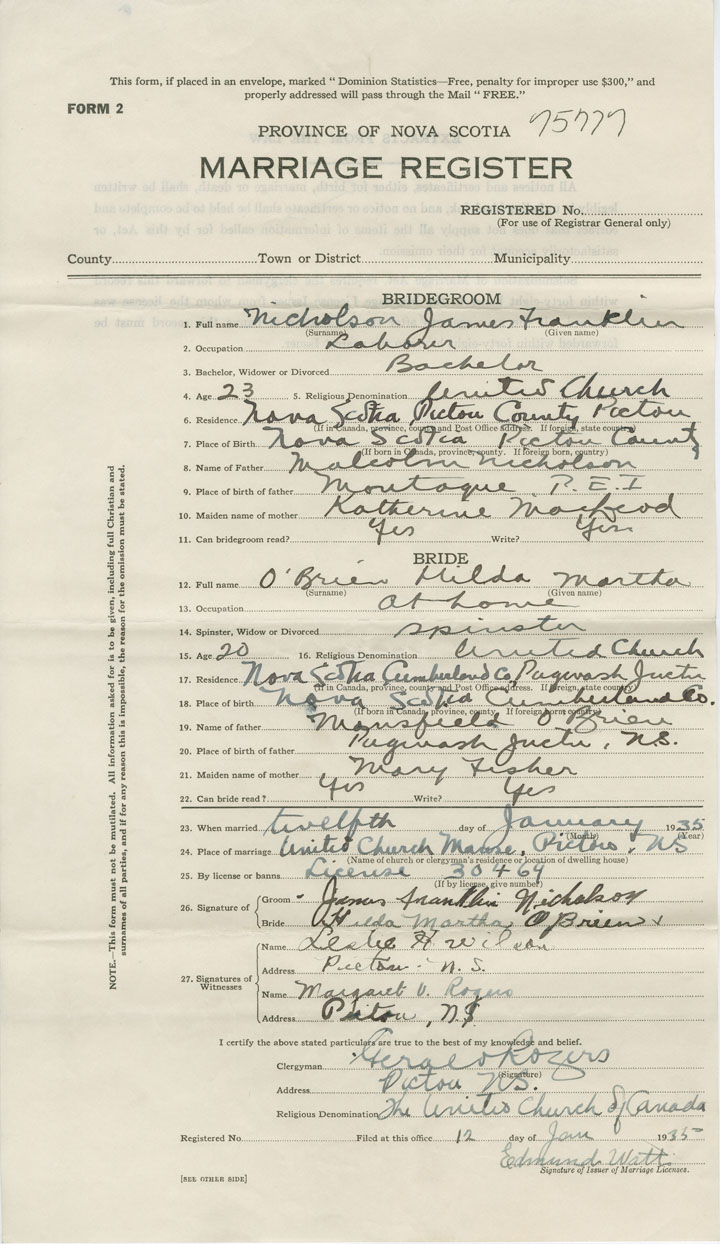 This form, if placed in an envelope, marked “ Dominion Statistics—Free, penalty for improper use $300,” and
properly addressed will pass through the Mail “ FREE.”
FORM 2
PROVINCE OF NOVA SCOTIA 75777
MARRIAGE REGISTER
REGISTERED No.
(For use of Registrar General only)
County Town or District Municipality
BRIDEGROOM
1. Full name Nicholson James Franklin
(Surname) (Given name)
2. Occupation Laborer
3. Bachelor, Widower or Divorced Bachelor
4. Age 23 5. Religious Denomination United Church
6. Residence Nova Scotia Pictou County Pictou
(If in Canada, province, county and Post Office address. If foreign, state country)
7. Place of Birth Nova Scotia Pictou County
(If born in Canada, province, county. If foreign born, country)
8. Name of Father Malcolm Nicholson
9. Place of birth of father Montague P.E.I
10. Maiden name of mother Katherine MacLeod
11. Can bridegroom read? Yes Write? Yes
BRIDE
12. Full name O'Brien Hilda Martha
(Surname) (Given name)
13. Occupation at home
14. Spinster, Widow or Divorced spinster
15. Age 20 16. Religious Denomination United Church
17. Residence Nova Scotia Cumberland Co, Pugwash Junctn
(If in Canada, province, county and Post Office address. If foreign, state country)
18. Place of birth Nova Scotia Cumberland Co.
(If born in Canada, province, county. If foreign born, country)
19. Name of father Mansfield O'Brien
20. Place of birth of father Pugwash Junctn, N.S.
21. Maiden name of mother Mary Fisher
22. Can bride read? Yes Write? Yes
23. When married twelfth day of January 1935
(Month) (Year)
24. Place of marriage United Church Manse, Pictou, NS
(Name of church or clergyman's residence or location of dwelling house)
25. By license or banns License 30464
(If by license, give number)
26. Signature of Groom James Franklin Nicholson
Bride Hilda Martha O'Brien x
27. Signatures of Witnesses Name Leslie H Wilson
Address Pictou N.S.
Name Margaret V. Rogers
Address Pictou, N.S
I certify the above stated particulars are true to the best of my knowledge and belief.
Clergyman Rogers
(Signature)
Address Pictou NS.
Religious Denomination The United Church of Canada
Registered No. Filed at this office 12 day of Jan 1935
Edmund Watt
Signature of Issuer of Marriage Licenses.
[SEE OTHER SIDE]
NOTE.—This form must not be mutilated. All information asked for is to be given, including full Christian and
surnames of all parties, and if for any reason this is impossible, the reason for the omission must be stated.